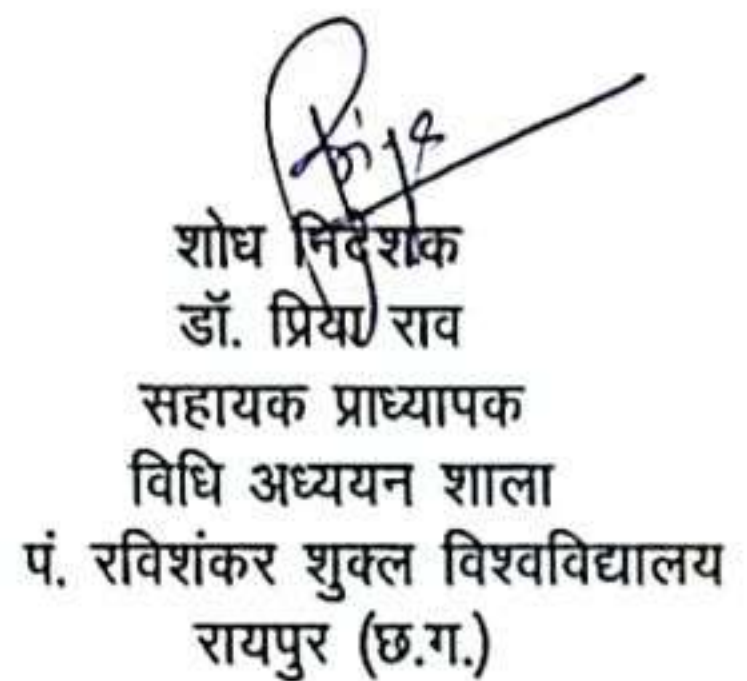 शोध निर्देशक
डॉ. प्रिया राव
सहायक प्राध्यापक
विधि अध्ययन शाला
पं. रविशंकर शुक्ल विश्वविद्यालय
रायपुर (छ.ग.)